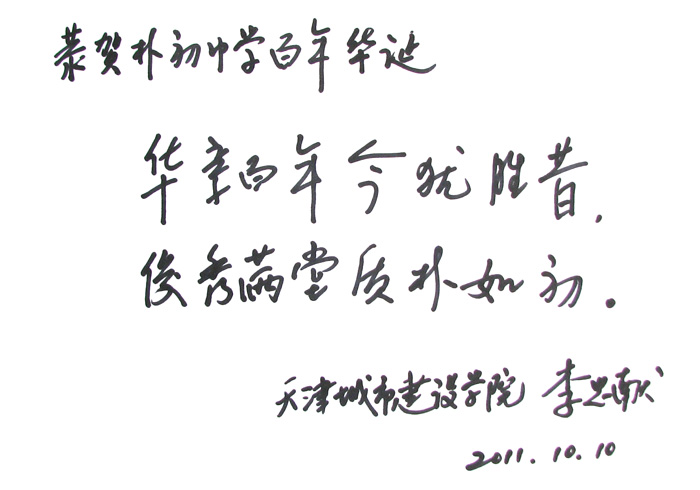 恭贺朴初中学百年华诞
华章百年今犹胜昔,
俊秀满堂质朴如初。
天津城市建设学院 李忠献
2011.10.10